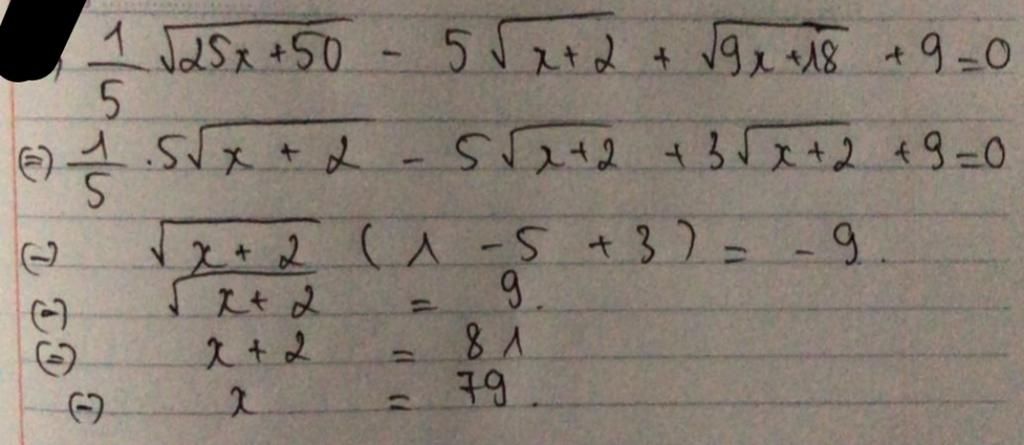 1/5 √(25x+50) - 5√(x+2) + √(9x+18) + 9 = 0
(=) 1/5 .5√(x + 2) - 5√(x+2) + 3√(x+2) + 9 = 0
(=) √(x + 2) (1 - 5 + 3) = - 9.
(=) √(x + 2) = 9.
(=) x + 2 = 81
(=) x = 79.